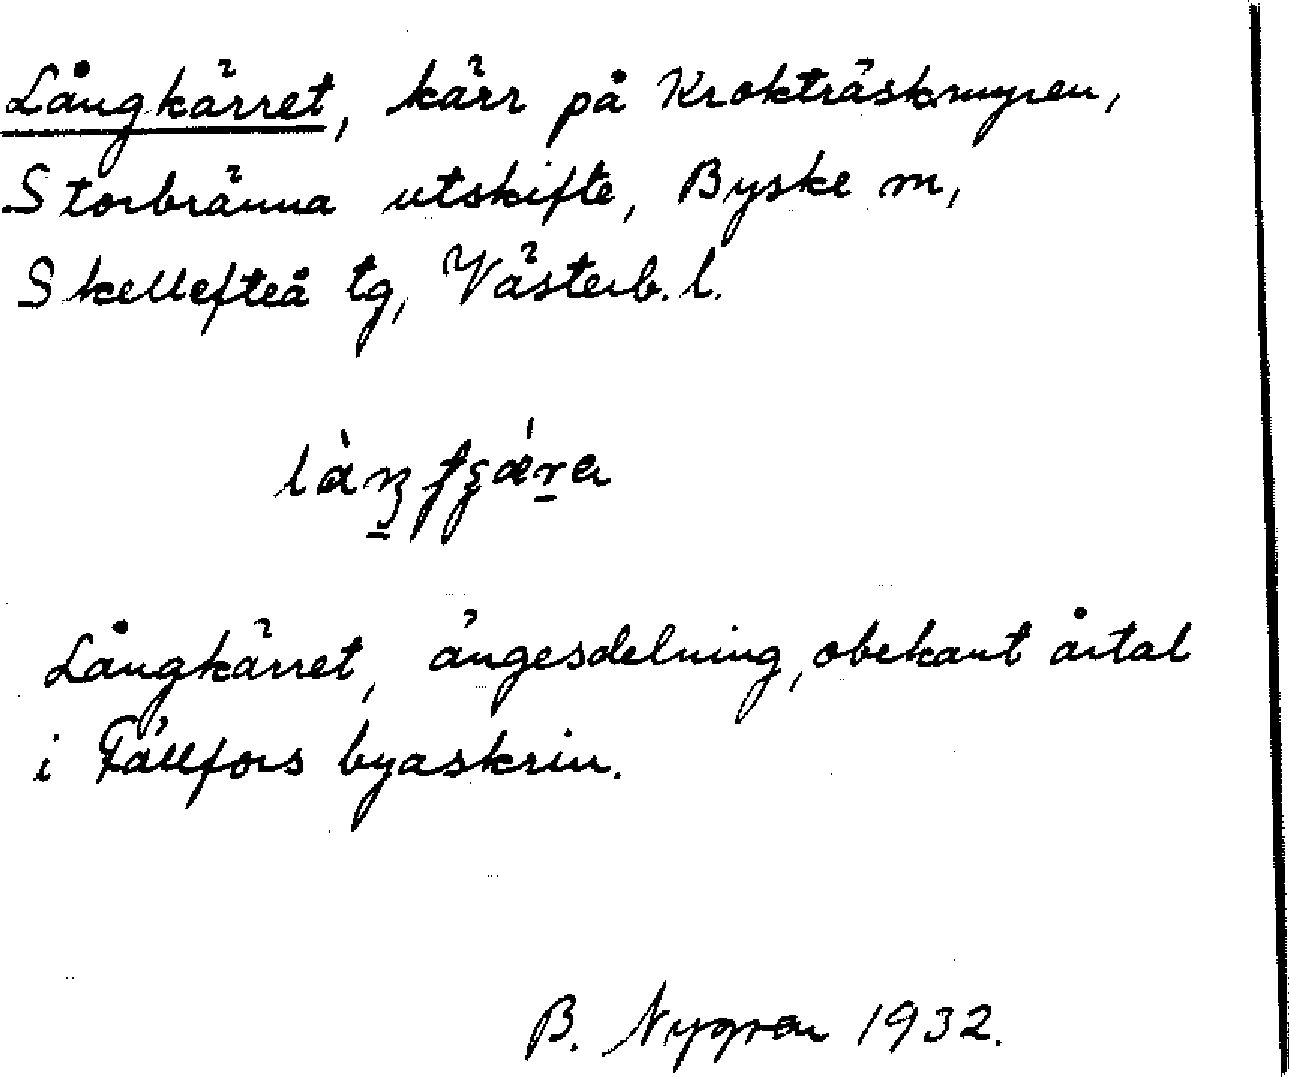 Långkärret, kärr på Krokträskmyren,
Storbränna utskifte, Byske m,
Skellefteå tg, Västerb. l.
Långkärret, ängesdelning, obekant årtal
i Fällfors byaskrin.
B. Nygren 1932.